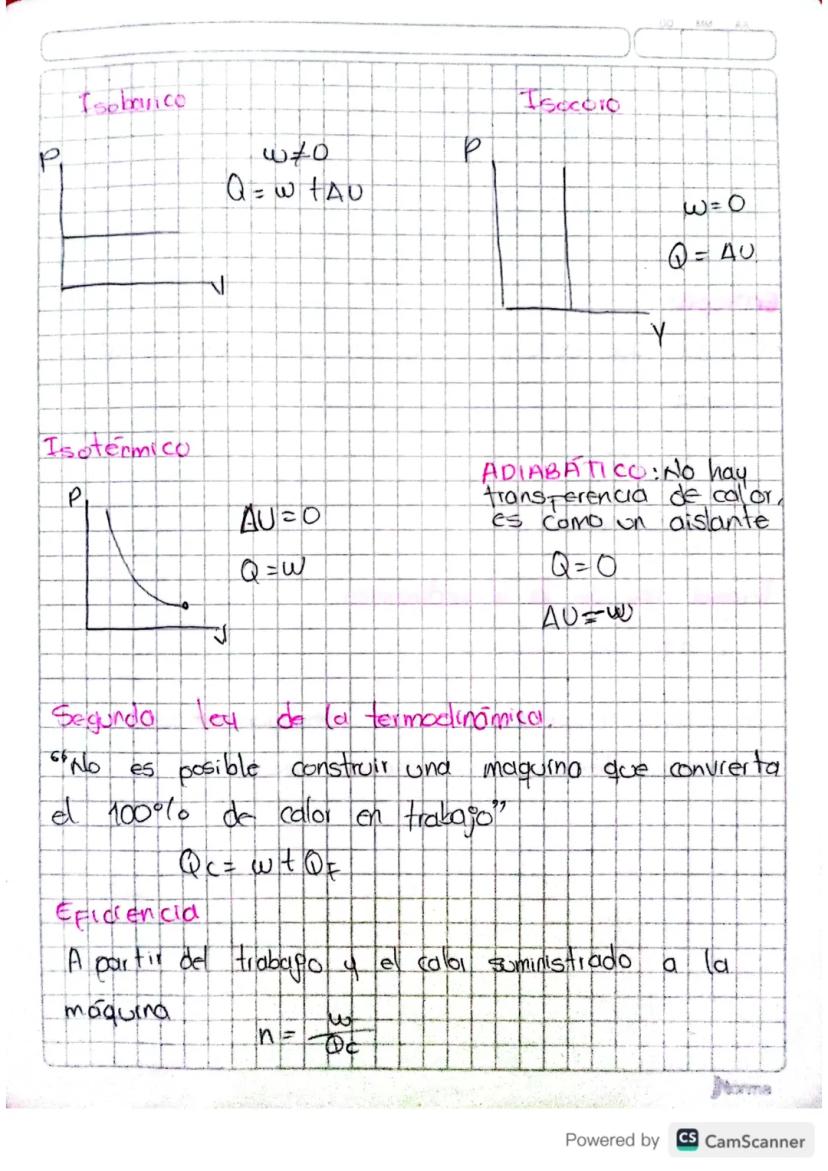 DD MM AA
Isobarico
P
V
w≠0
Q = w + ΔU
Isocoro
P
V
w=0
Q = ΔU.
Isotérmico
P
V
ΔU=0
Q=w
ADIABÁTICO: No hay
transferencia de calor,
es como un aislante
Q=0
ΔU=-w
Segunda ley de la termodinámica.
“No es posible construir una maquina que convierta
el 100% de calor en trabajo”
Qc= w + QF
Eficiencia
A partir del trabajo y el calor suministrado a la
máquina
n = w/Qc
Norma
Powered by CS CamScanner